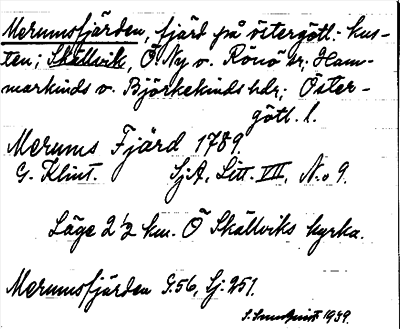 Merumsfjärden, fjärd på östergötl. kus-
ten; Skällvik, Ö Ny v. Rönö hr; Ham-
markinds o. Björkekinds hdr; Öster-
götl. l.
Merums Fjärd 1789.
G. Klint. SjA, Litt. VII, N:o 9.
Läge 2 ½ km. Ö Skällviks kyrka.
Merumsfjärden G.56, Sj.251.
1939.